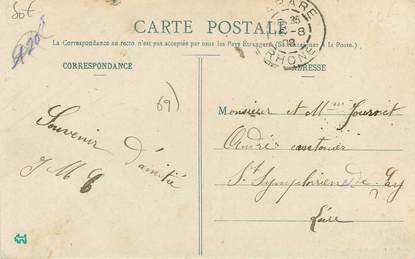 Sot
CARTE POSTALE
La Correspondance au recto n'est pas acceptée par tous les Pays Étrangers (Se renseigner à la Poste.)
CORRESPONDANCE
ADRESSE
RHONE
69)
Souvenir
d'amitié
Monsieur et Mme Journet
André cantonier
St Symphorien de Lay
Loire